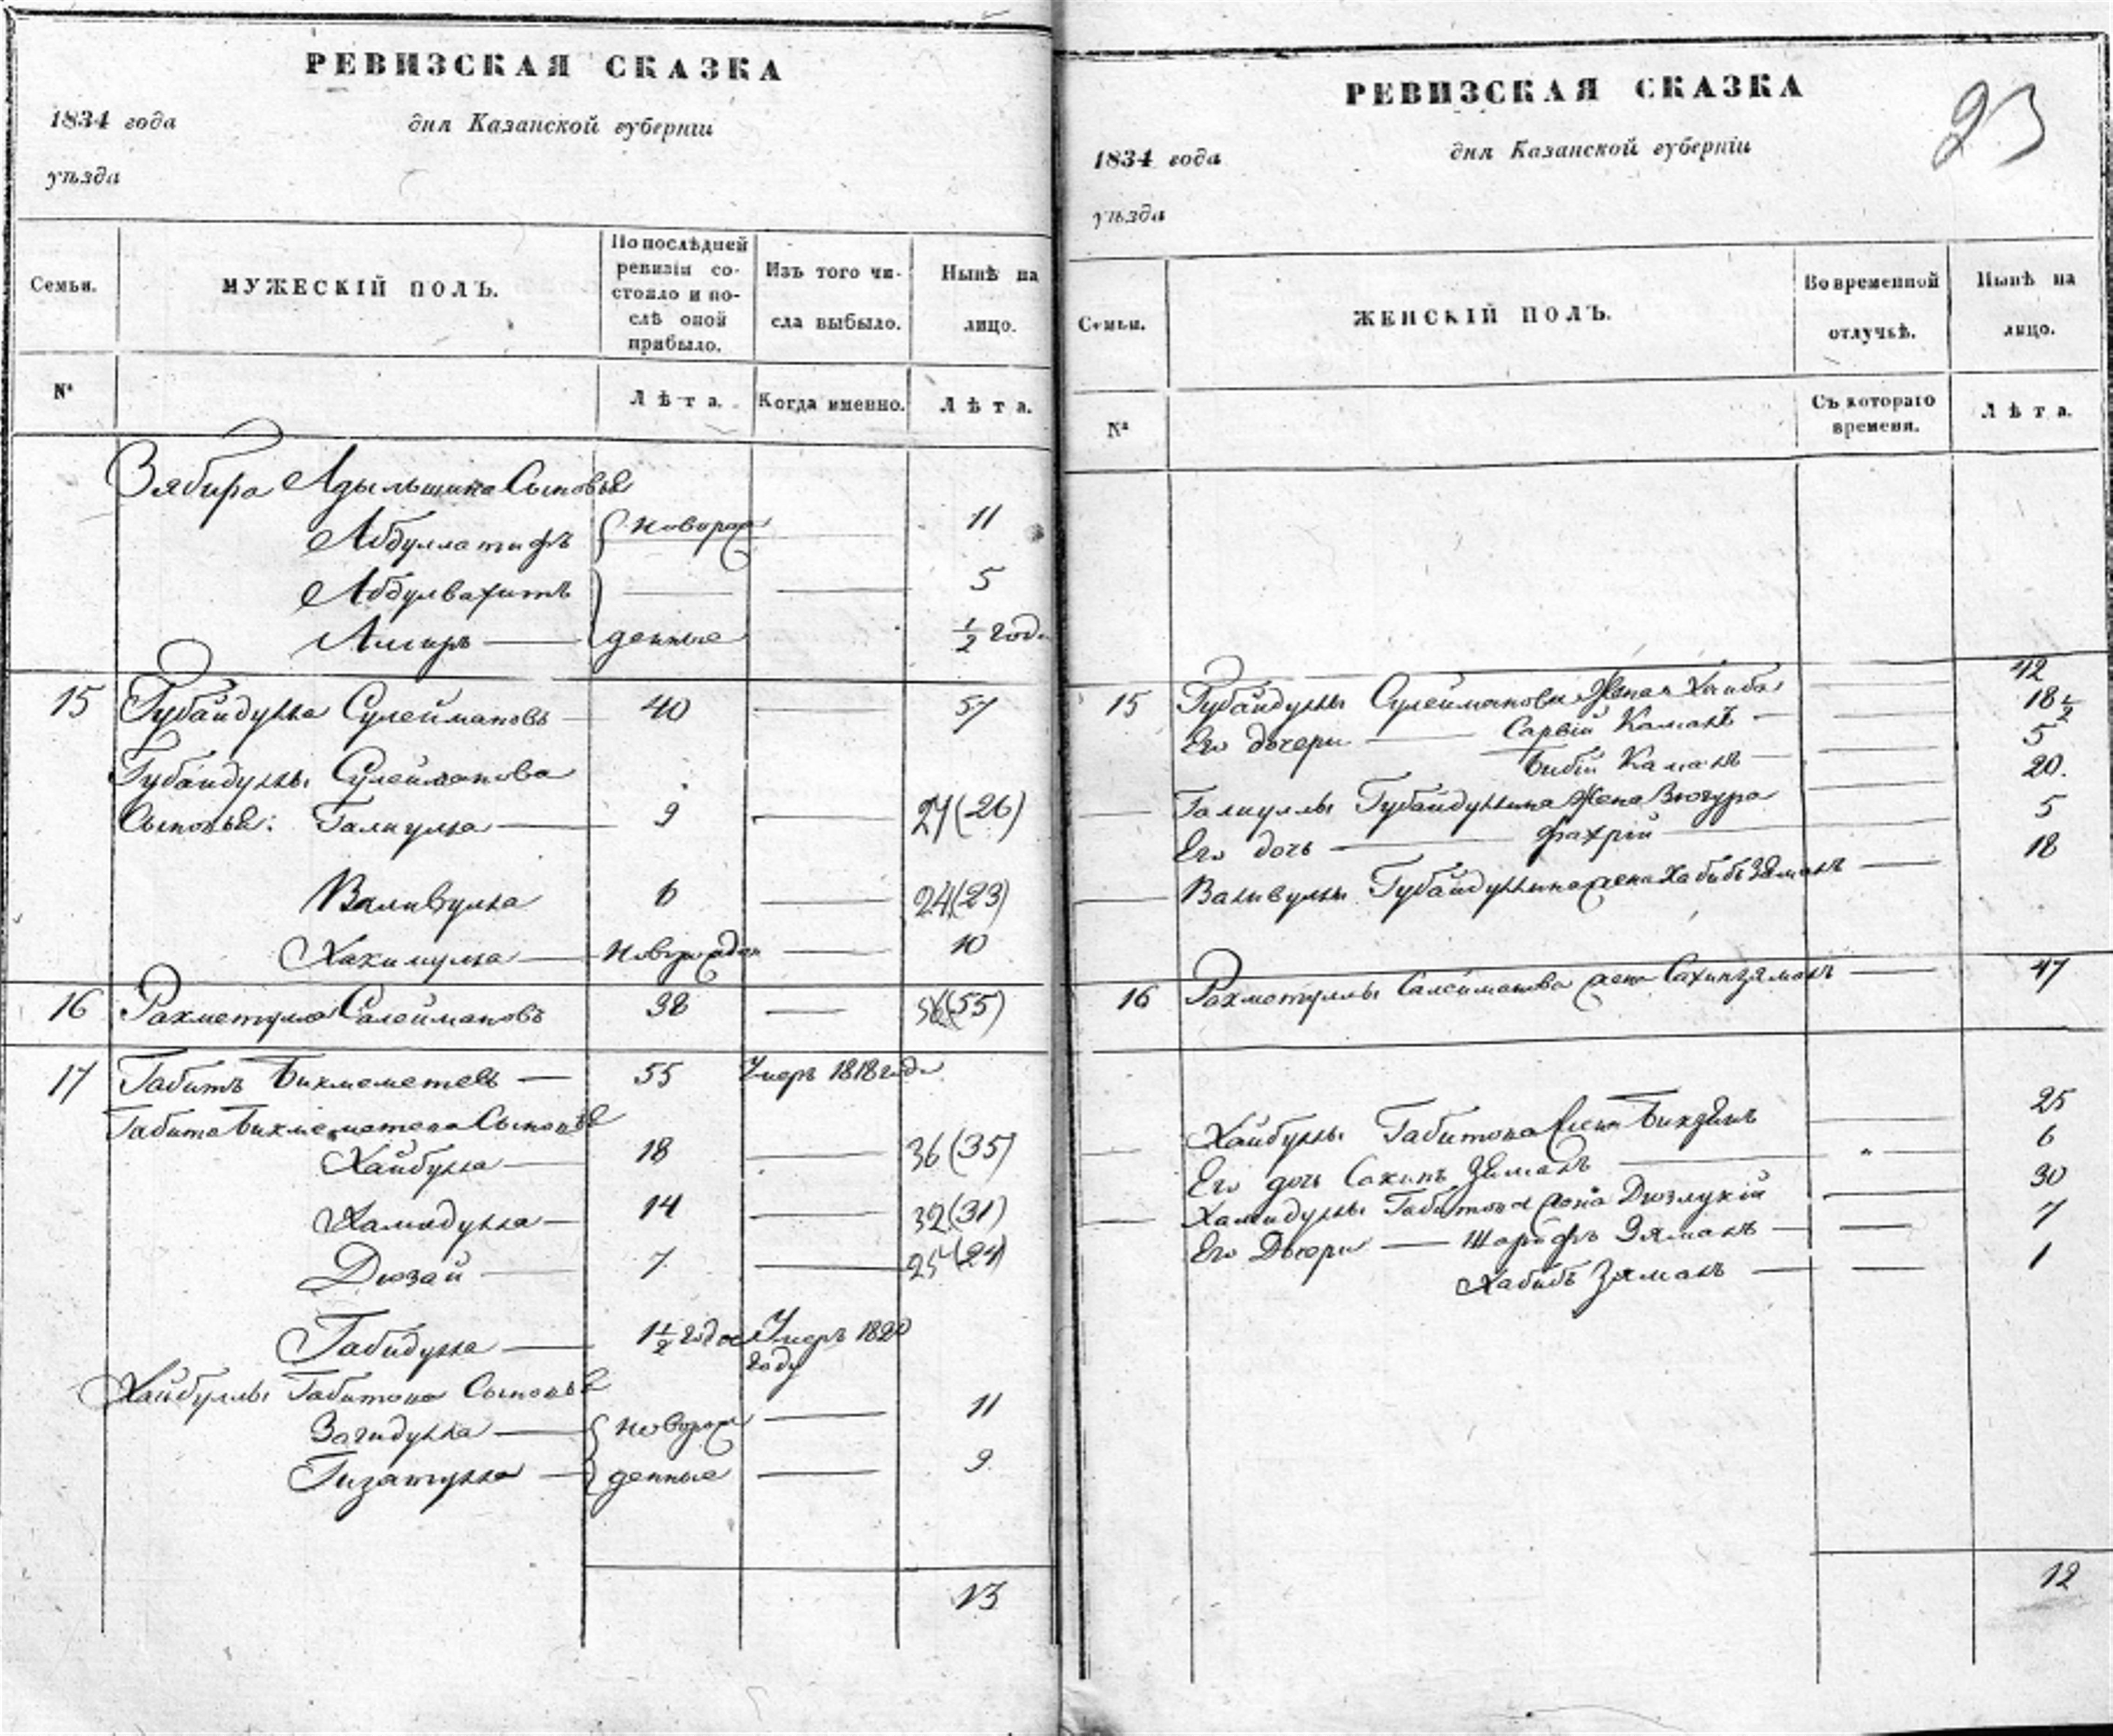 РЕВИЗСКАЯ СКАЗКА
1834 года дня Казанской губерніи
уѣзда
Семьи. МУЖЕСКІЙ ПОЛЪ. По послѣдней ревизіи состояло и послѣ оной прибыло. Изъ того числа выбыло. Нынѣ на лицо.
№ Лѣта. Когда именно. Лѣта.
Зябира Адыльшина Сыновья
Абдуллатифъ новорож 11
Абдулвахитъ 5
Амиръ денные ½ года
15 Губайдулла Сулеймановъ 40 57
Губайдуллы Сулейманова
Сыновья: Галиулла 9 27 (26)
Валивулла 6 24 (23)
Хакимулла новорожден 10
16 Рахметулла Сулеймановъ 38 56 (55)
17 Габитъ Бикмеметевъ 55 Умеръ 1818 года
Габита Бикмеметева Сыновья
Хайбулла 18 36 (35)
Хамидулла 14 32 (31)
Дюзай 7 25 (24)
Габидулла 1½ года Умеръ 1820
году
Хайбуллы Габитова Сыновья
Загидулла новорож 11
Гизатулла денные 9
13
РЕВИЗСКАЯ СКАЗКА 23
1834 года дня Казанской губерніи
уѣзда
Семьи. ЖЕНСКІЙ ПОЛЪ. Во временной отлучкѣ. Нынѣ на лицо.
№ Съ котораго времени. Лѣта.
15 Губайдуллы Сулейманова Жена 42
Его дочери Сарвій Камалъ 18½
Бибій Камалъ 5
Галиуллы Губайдуллина Жена 20.
Его дочь Фахрій 5
Валивуллы Губайдуллина жена Хабибъ Зяманъ 18
16 Рахметуллы Сулейманова жена 47
Хайбуллы Габитова жена 25
Его дочь Сахипъ Зяманъ 6
Хамидуллы Габитова жена 30
Его Дочери Шарифъ Зяманъ 7
Хабибъ Зяманъ 1
12